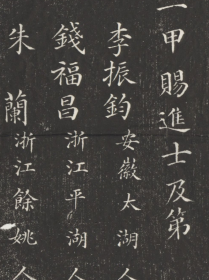 一甲賜進士及第
李振鈞安徽太湖人
錢福昌浙江平湖人
朱蘭浙江餘姚人